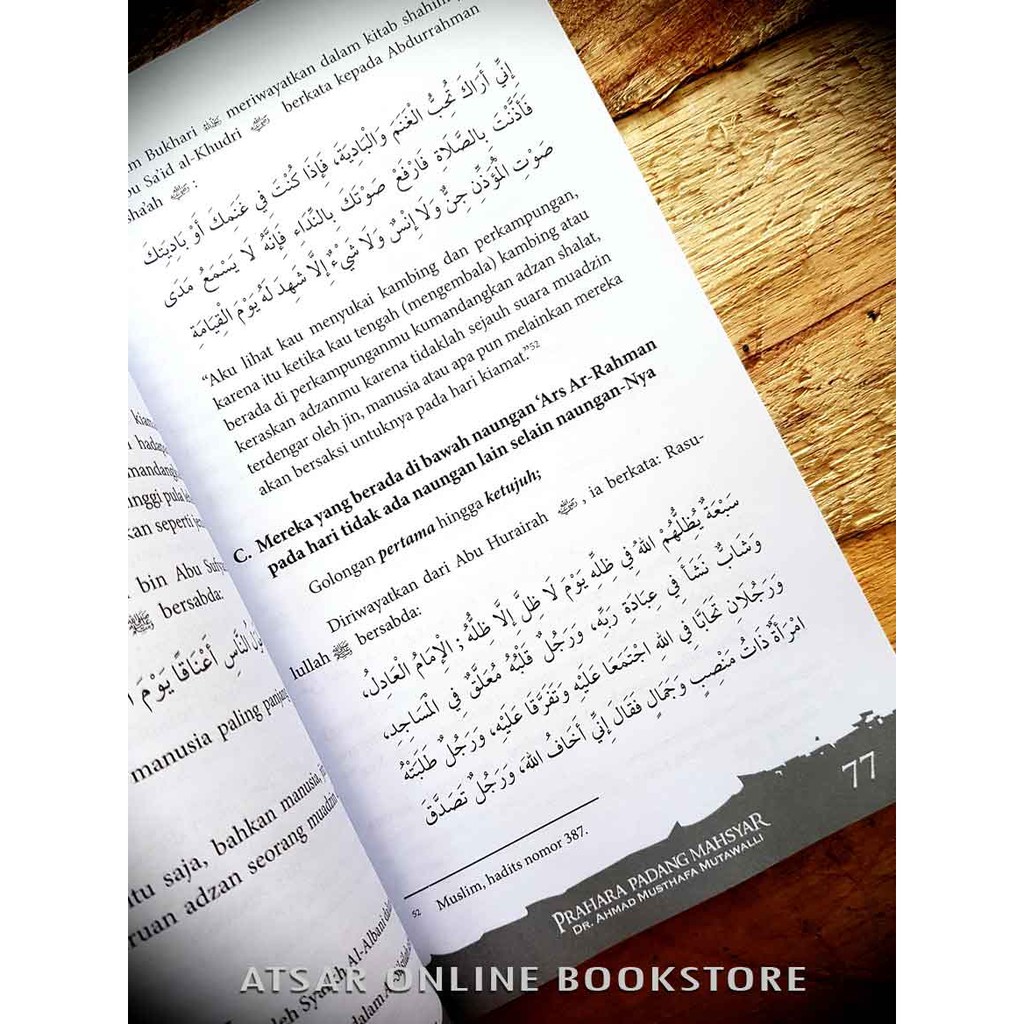 kian
hadap
mandang
nggi pula
kan seperti
bin Abu Sufy
ﷺ bersabda:
النَّاسِ أَعْنَاقًا يَوْمَ
manusia paling panjang
tu saja, bahkan manusia,
ruan adzan seorang muadzin
leh Syaikh Al-Albani
m Bukhari meriwayatkan dalam kitab shahih
bu Sa'id al-Khudri berkata kepada Abdurrahman
sha'ah :
إِنِّي أَرَاكَ تُحِبُّ الْغَنَمَ وَالْبَادِيَةَ، فَإِذَا كُنْتَ فِي غَنَمِكَ أَوْ بَادِيَتِكَ
فَأَذَّنْتَ بِالصَّلَاةِ فَارْفَعْ صَوْتَكَ بِالنِّدَاءِ فَإِنَّهُ لَا يَسْمَعُ مَدَى
صَوْتِ الْمُؤَذِّنِ جِنٌّ وَلَا إِنْسٌ وَلَا شَيْءٌ إِلَّا شَهِدَ لَهُ يَوْمَ الْقِيَامَةِ
"Aku lihat kau menyukai kambing dan perkampungan,
karena itu ketika kau tengah (mengembala) kambing atau
berada di perkampunganmu kumandangkan adzan shalat,
keraskan adzanmu karena tidaklah sejauh suara muadzin
terdengar oleh jin, manusia atau apa pun melainkan mereka
akan bersaksi untuknya pada hari kiamat."52
C. Mereka yang berada di bawah naungan 'Ars Ar-Rahman
pada hari tidak ada naungan lain selain naungan-Nya
Golongan pertama hingga ketujuh;
Diriwayatkan dari Abu Hurairah , ia berkata: Rasu-
lullah ﷺ bersabda:
سَبْعَةٌ يُظِلُّهُمْ اللَّهُ فِي ظِلِّهِ يَوْمَ لَا ظِلَّ إِلَّا ظِلُّهُ ؛ الْإِمَامُ الْعَادِلُ،
وَشَابٌّ نَشَأَ فِي عِبَادَةِ رَبِّهِ، وَرَجُلٌ قَلْبُهُ مُعَلَّقٌ فِي الْمَسَاجِدِ،
وَرَجُلَانِ تَحَابَّا فِي اللَّهِ اجْتَمَعَا عَلَيْهِ وَتَفَرَّقَا عَلَيْهِ، وَرَجُلٌ طَلَبَتْهُ
امْرَأَةٌ ذَاتُ مَنْصِبٍ وَجَمَالٍ فَقَالَ إِنِّي أَخَافُ اللَّهَ، وَرَجُلٌ تَصَدَّقَ
52 Muslim, hadits nomor 387.
77
PRAHARA PADANG MAHSYAR
DR. AHMAD MUSTHAFA MUTAWALLI
ATSAR ONLINE BOOKSTORE